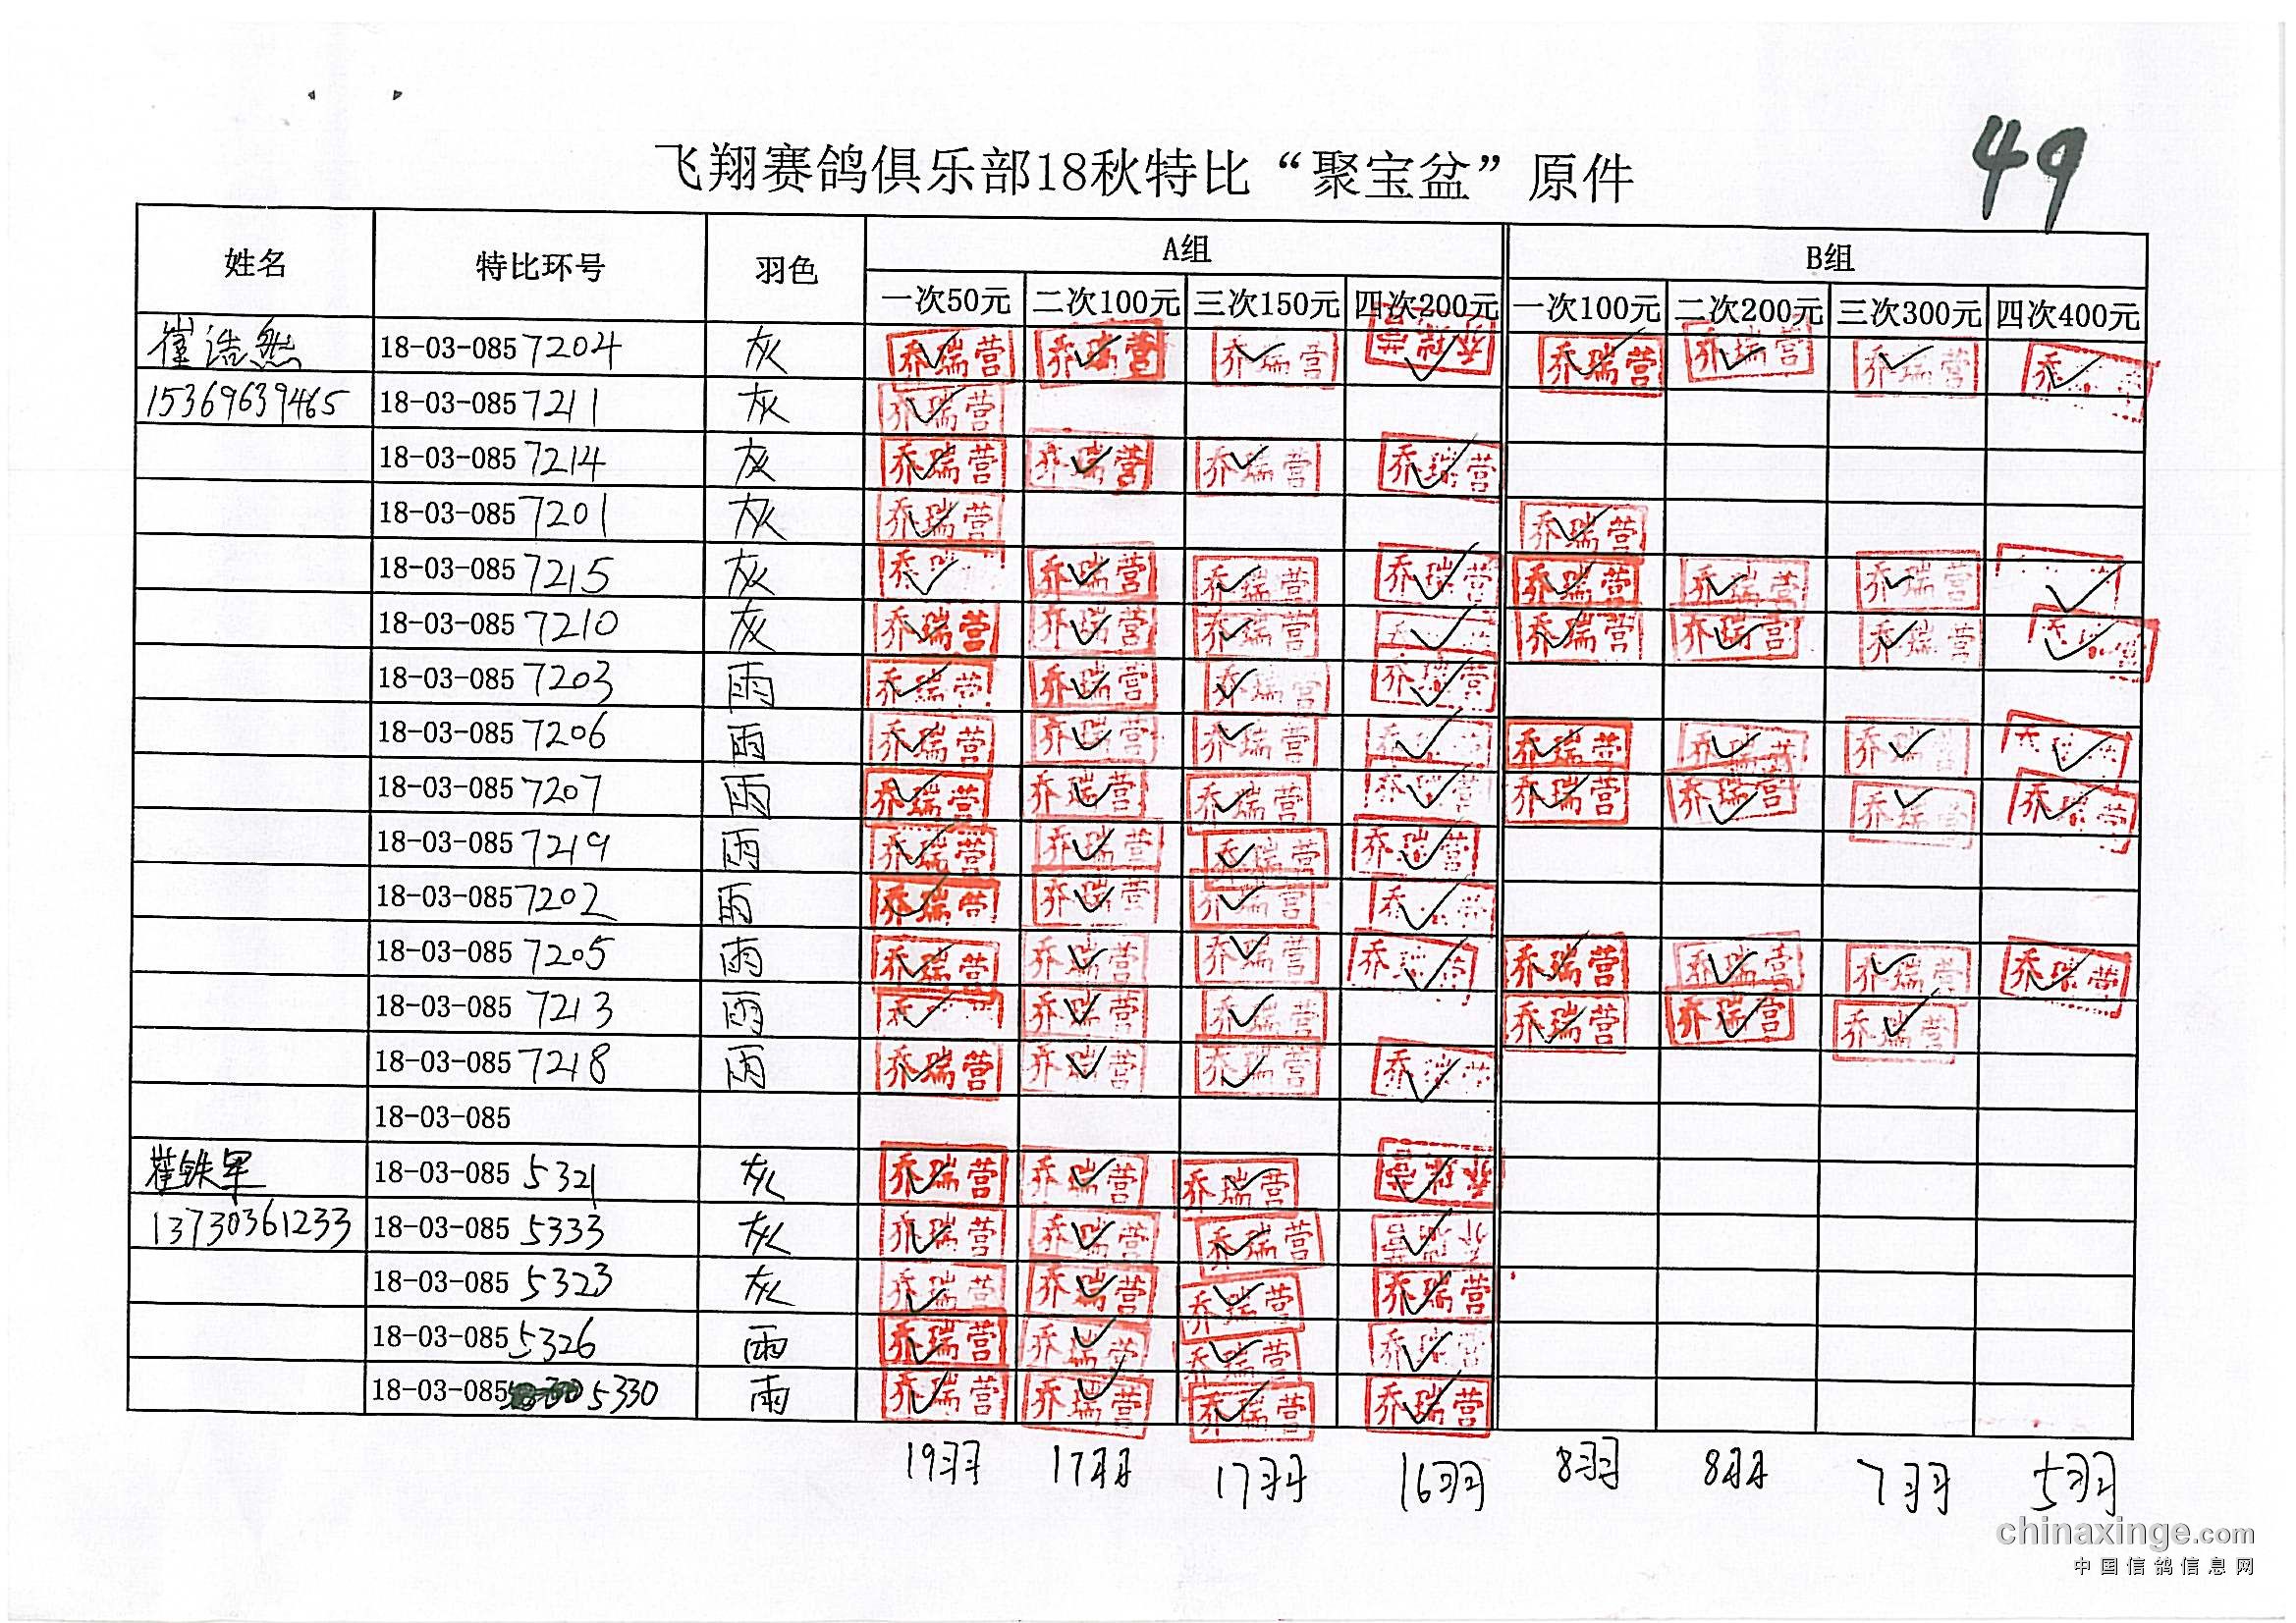 49
飞翔赛鸽俱乐部18秋特比“聚宝盆”原件
姓名 特比环号 羽色 A组 B组
一次50元 二次100元 三次150元 四次200元 一次100元 二次200元 三次300元 四次400元
崔浩然 18-03-085 7204 灰 乔瑞营 乔瑞营 乔瑞营 乔瑞营 乔瑞营 乔瑞营 乔瑞营 乔
15369639465 18-03-085 7211 灰 乔瑞营
18-03-085 7214 灰 乔瑞营 乔瑞营 乔瑞营 乔瑞营
18-03-085 7201 灰 乔瑞营 乔瑞营
18-03-085 7215 灰 乔瑞 乔瑞营 乔瑞营 乔瑞营 乔瑞营 乔瑞营 乔瑞营
18-03-085 7210 灰 乔瑞营 乔瑞营 乔瑞营 乔瑞营 乔瑞营 乔瑞营
18-03-085 7203 雨 乔瑞营 乔瑞营 乔瑞营 乔瑞营
18-03-085 7206 雨 乔瑞营 乔瑞营 乔瑞营 乔瑞营 乔瑞营 乔瑞营
18-03-085 7207 雨 乔瑞营 乔瑞营 乔瑞营 乔瑞营 乔瑞营 乔瑞营 乔瑞营 乔瑞营
18-03-085 7219 雨 乔瑞营 乔瑞营 乔瑞营 乔瑞营
18-03-085 7202 雨 乔瑞营 乔瑞营 乔瑞营 乔
18-03-085 7205 雨 乔瑞营 乔瑞营 乔瑞营 乔瑞营 乔瑞营 乔瑞营 乔瑞营 乔瑞营
18-03-085 7213 雨 乔 乔瑞营 乔瑞营 乔瑞营 乔瑞营 乔瑞营
18-03-085 7218 雨 乔瑞营 乔瑞营 乔瑞营 乔瑞营
18-03-085
崔铁军 18-03-085 5321 灰 乔瑞营 乔瑞营 乔瑞营 乔瑞营
13730361233 18-03-085 5333 灰 乔瑞营 乔瑞营 乔瑞营
18-03-085 5323 灰 乔瑞营 乔瑞营 乔瑞营 乔瑞营
18-03-085 5326 雨 乔瑞营 乔瑞营 乔瑞营 乔瑞营
18-03-085 5330 雨 乔瑞营 乔瑞营 乔瑞营 乔瑞营
19羽 17羽 17羽 16羽 8羽 8羽 7羽 5羽
chinaxinge.com
中国信鸽信息网